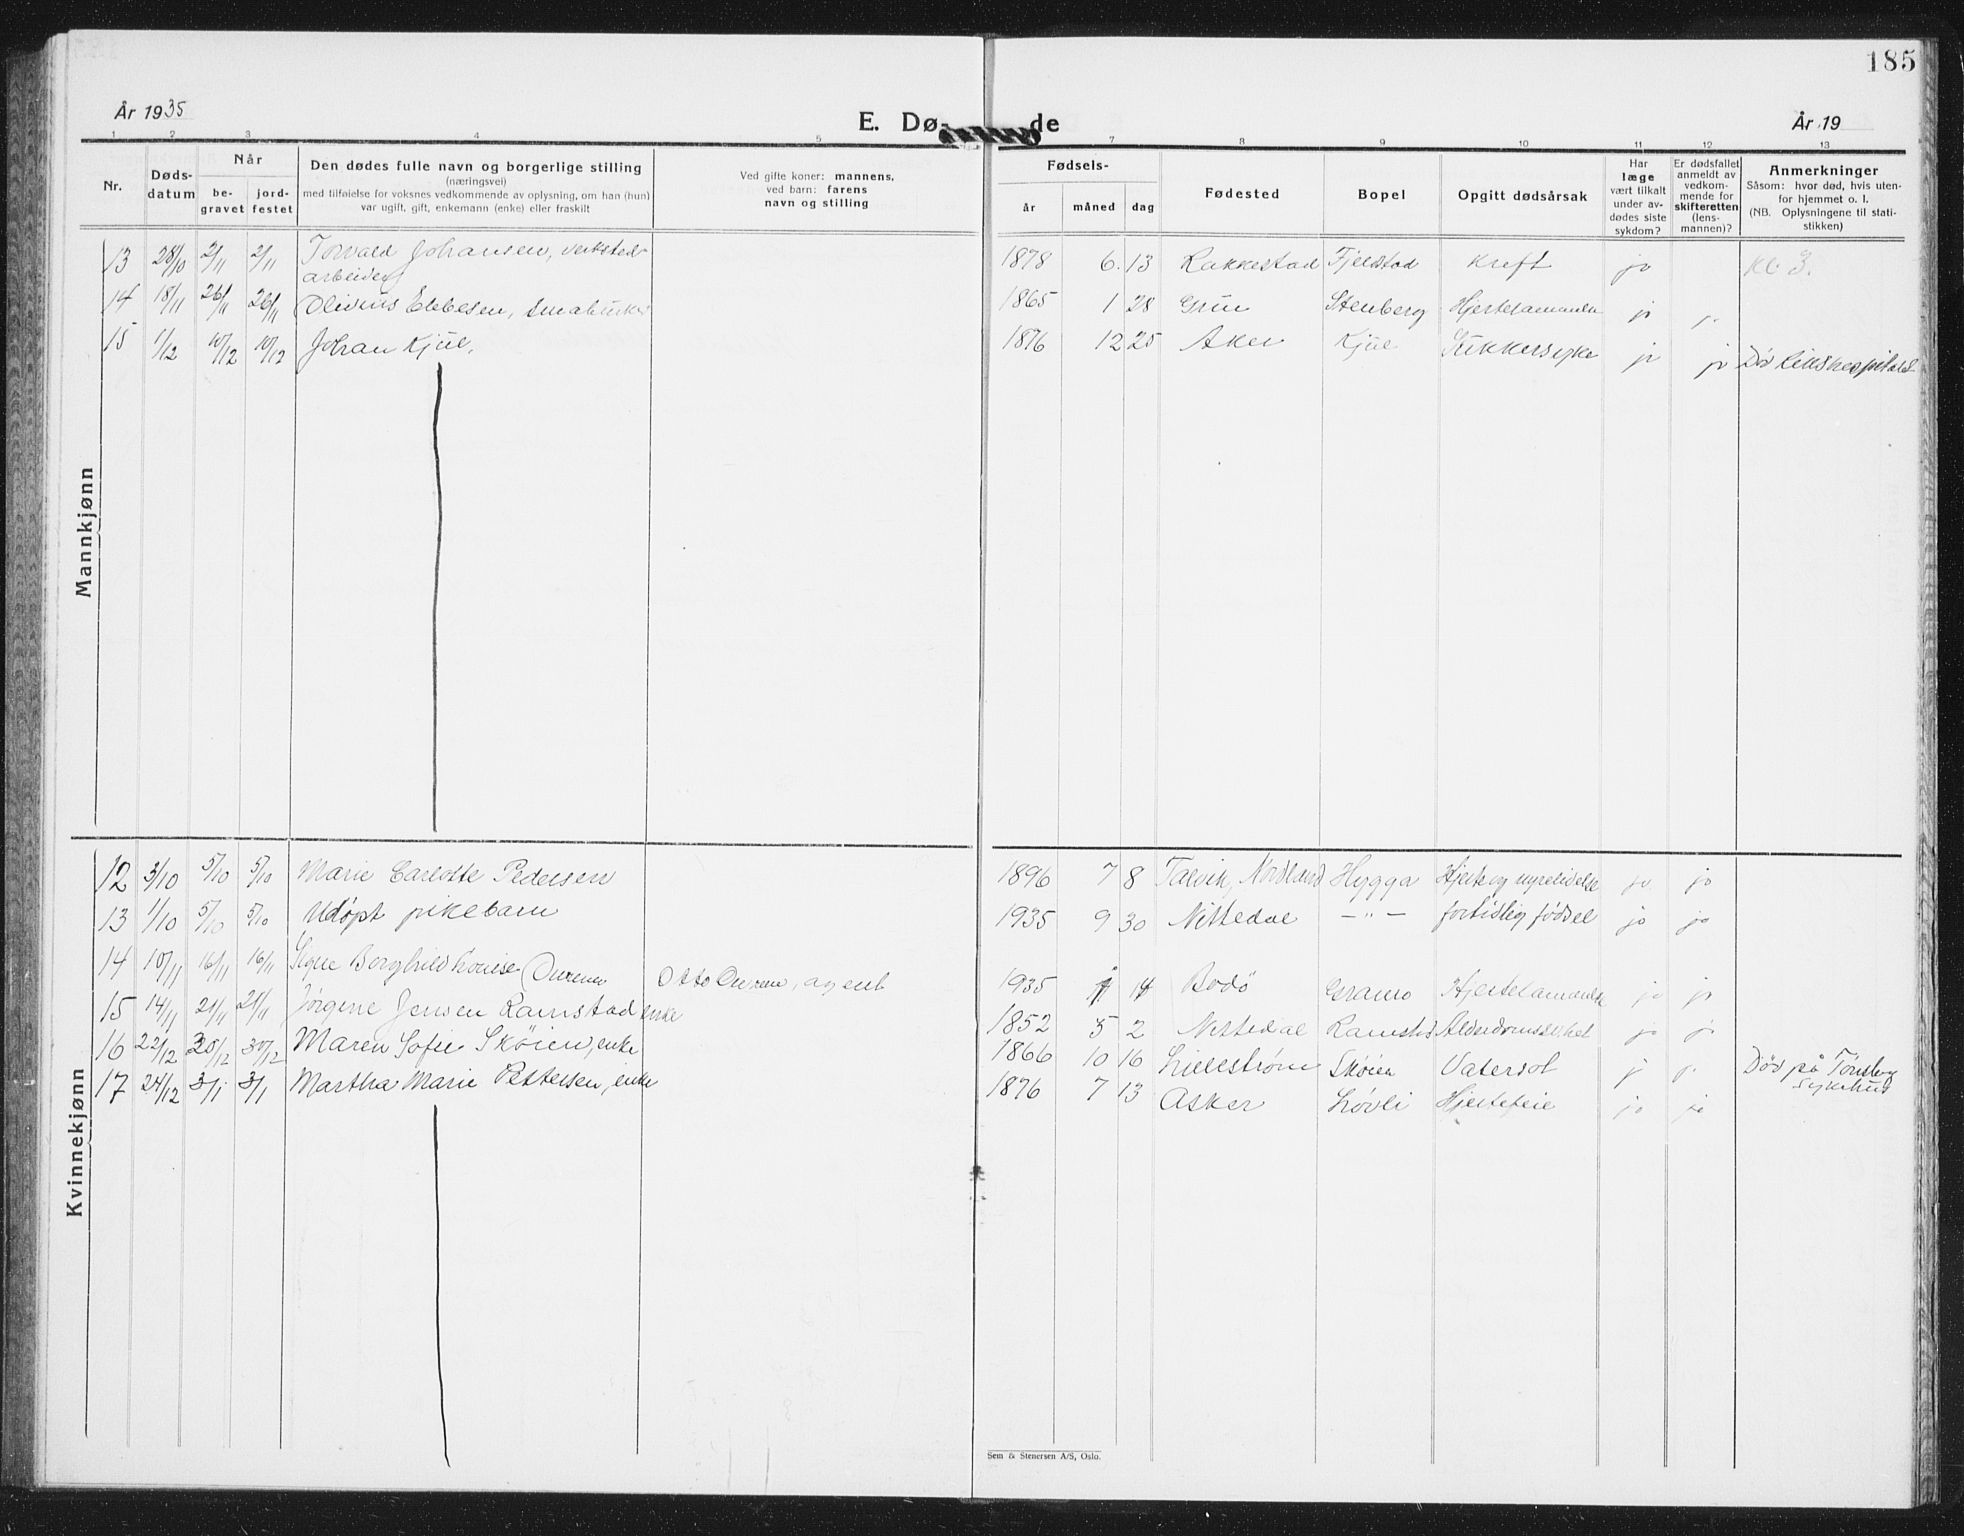 185
År 1935
E. Dø- de
År 19
1 2 3 4 5 7 8 9 10 11 12 13
Nr.
Døds-
datum
Når
be-
gravet
jord-
festet
Den dødes fulle navn og borgerlige stilling
(næringsvei)
med tilføielse for voksnes vedkommende av oplysning, om han (hun)
var ugift, gift, enkemann (enke) eller fraskilt
Ved gifte koner: mannens,
ved barn: farens
navn og stilling
Fødsels-
år måned dag
Fødested
Bopel
Opgitt dødsårsak
Har
læge
vært tilkalt
under av-
dødes siste
sykdom?
Er dødsfallet
anmeldt av
vedkom-
mende for
skifteretten
(lens-
mannen)?
Anmerkninger
Såsom: hvor død, hvis uten-
for hjemmet o. l.
(NB. Oplysningene til stati-
stikken)
Mannkjønn
13 28/10 2/11 2/11 Torvald Johansen, verksted- 1878 6. 13 Rakkestad Fjeldstad Kreft ja Kl. 3.
arbeider
14 18/11 26/11 26/11 Olivius Ebbesen, småbruker 1865 1 28 Grue Stenberg Hjertelammelse ja
15 1/12 10/12 10/12 Johan Kjul. 1876 12 25 Aker Kjul Sukkersyke ja ja Død Rikshospitalet
Kvinnekjønn
12 3/10 5/10 5/10 Marie Carlotte Pedersen 1896 7 8 Talvik, Nordland Hygga Hjerte og nyrelidelse ja ja
13 1/10 5/10 5/10 Udøpt pikebarn 1935 9 30 Nittedal — " — fortidlig fødsel ja ja
14 10/11 16/11 16/11 Signe Borghild Louise Otto agent 1935 Bodø Hjertelammelse ja ja
15 14/11 21/11 21/11 Jørgine Jensen Ramstad enke 1852 5 2 Nittedal Ramstad Alderdomssvakhet ja ja
16 22/12 30/12 30/12 Maren Sofie Skøien, enke 1866 10 16 Lillestrøm Skøien Vatersot j Død på Tønsberg
sykehus
17 24/12 3/1 3/1 Martha Marie Pettersen, enke 1876 7 13 Asker Løvli Hjertefeil ja ja
Sem & Stenersen A/S, Oslo.